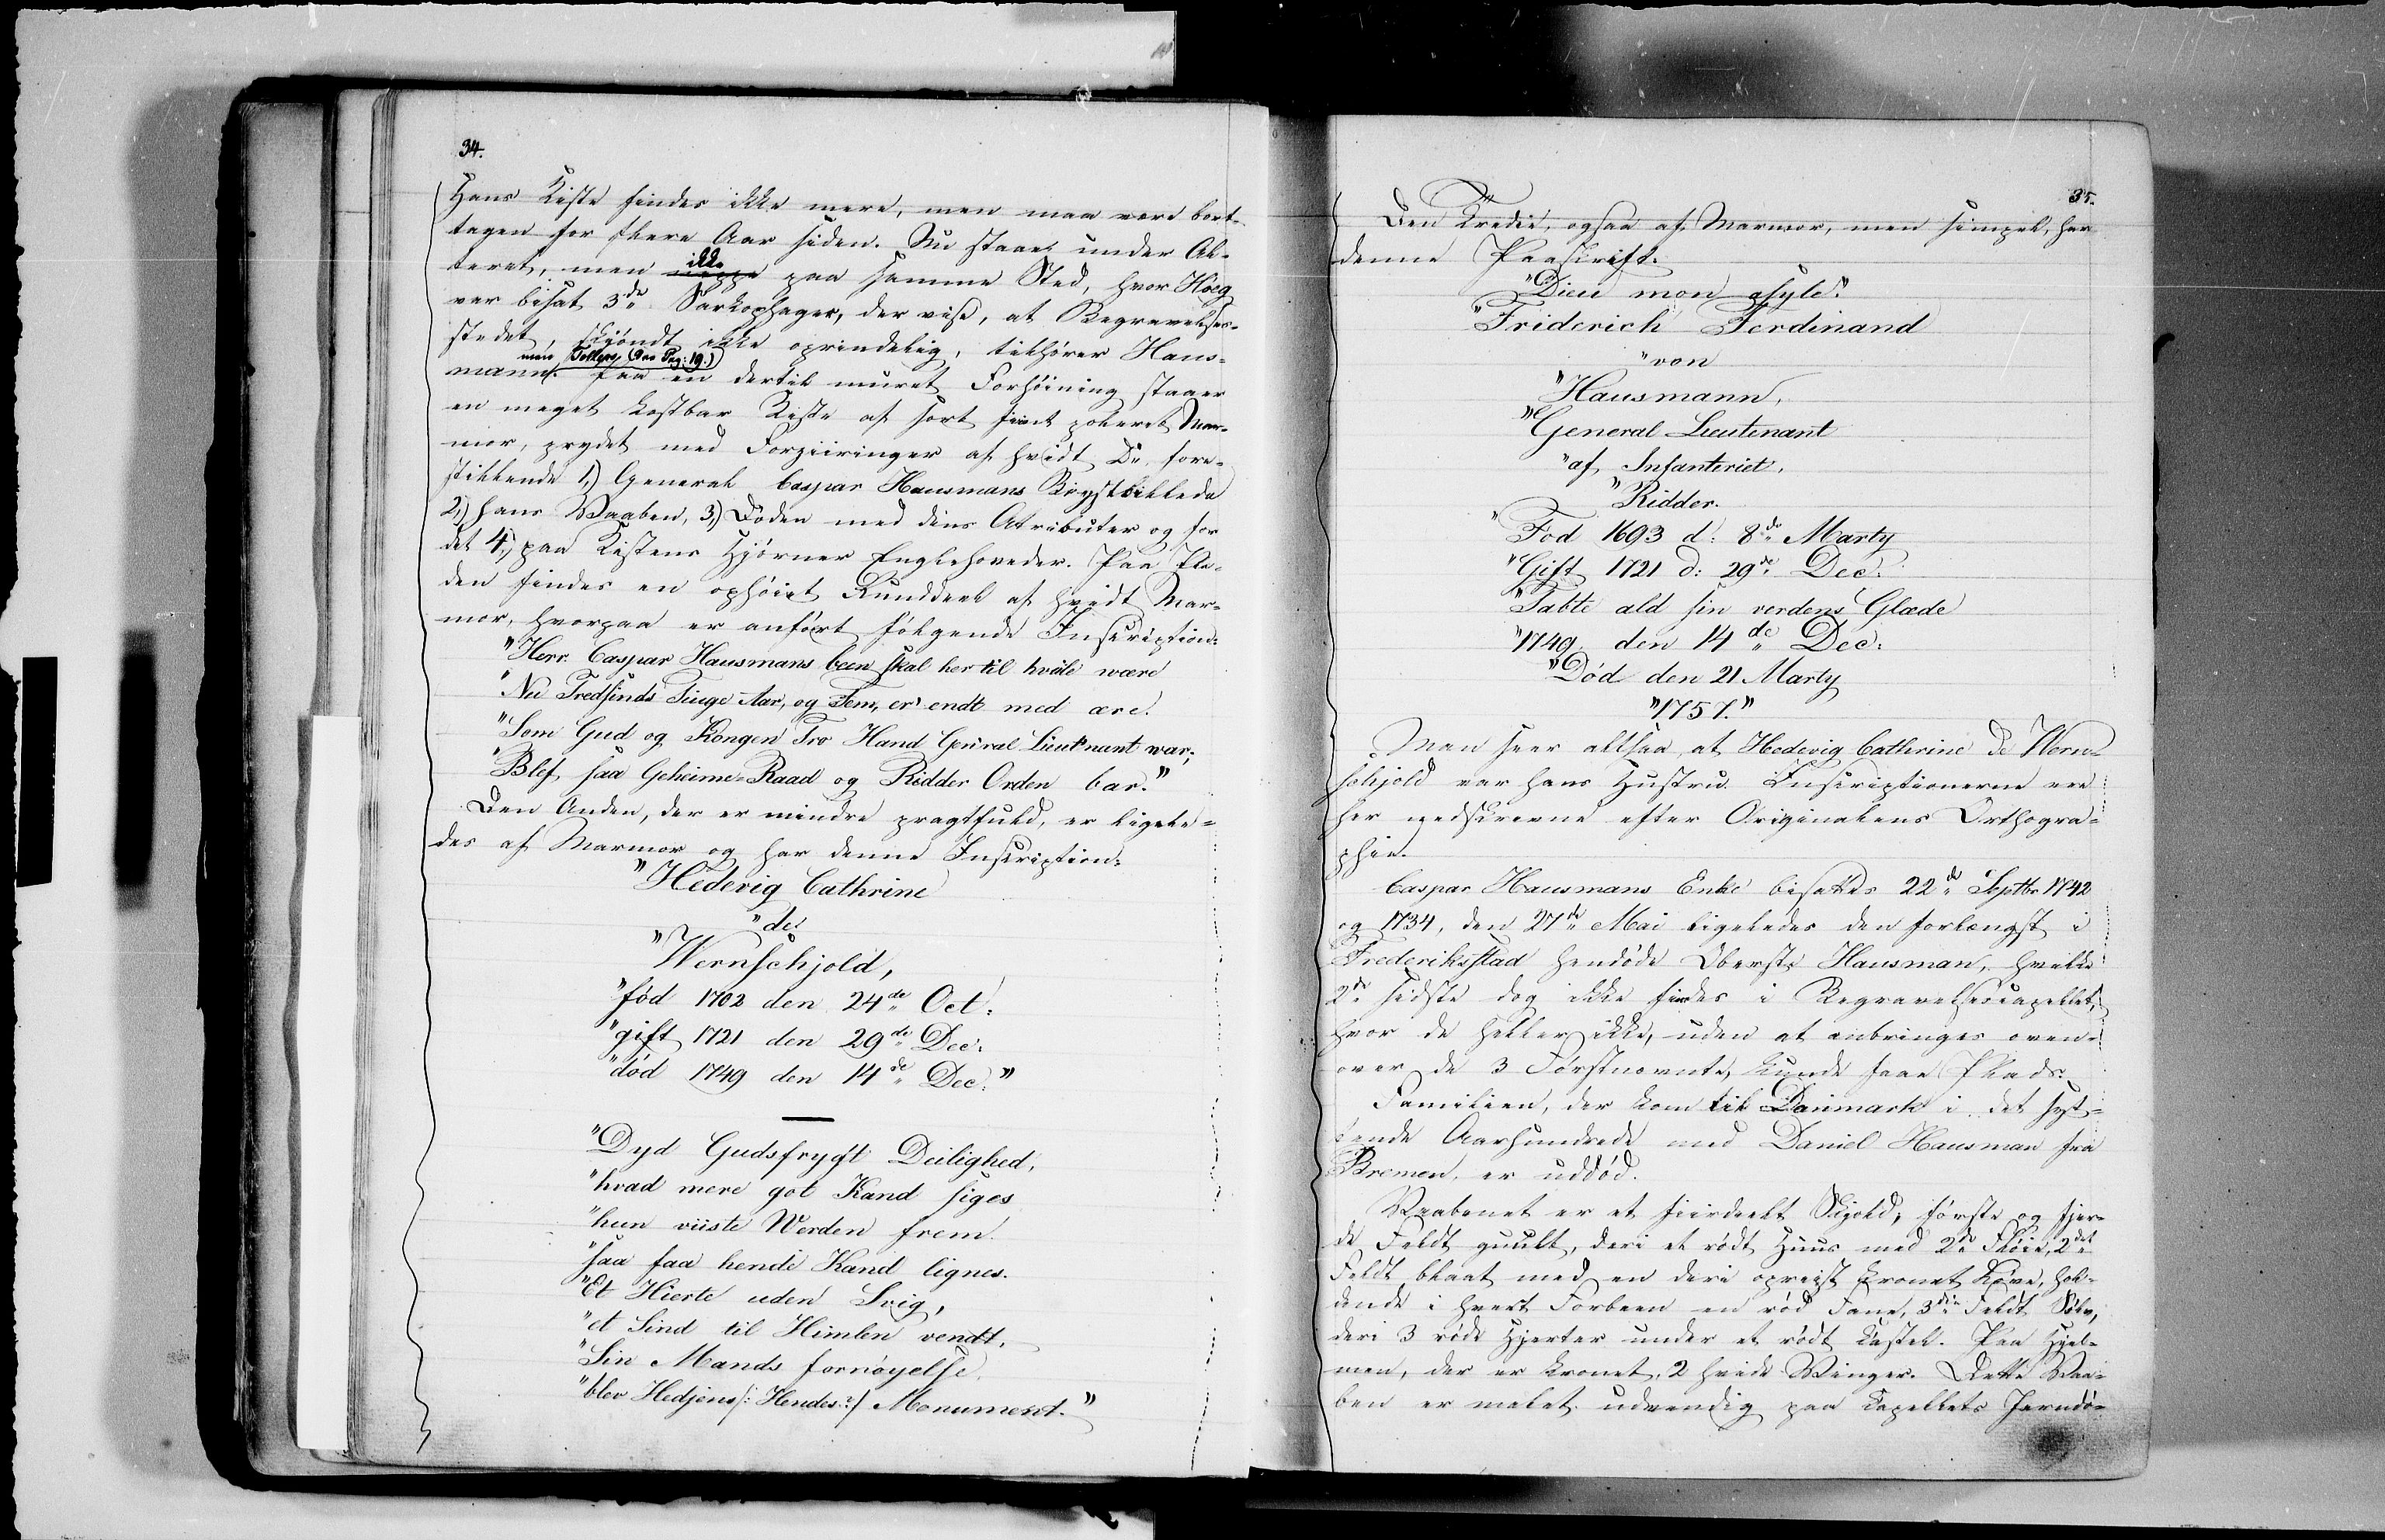 34.
Hans Kiste findes ikke mere, men maa være bort-
tagen for flere Aar siden. Nu staaer under Al-
teret, men ikke paa samme Sted, hvor Höeg
var bisat 3de Sarkophager, der vise, at Begravelses-
stedet, skjöndt ikke oprindelig, tilhörer Haus-
men Tollers (See Pag: 19.)
mann. Paa en dertil muret Forhöining staaer
en meget kostbar Kiste af sort fiint poleret Mar-
mor, prydet med Forziiringer af hvidt Do. fore-
stillende 1,) General Caspar Hausmans Brystbillede
2,) hans Vaaben, 3,) Döden med dens Atributer og for
det 4,) paa Kistens Hjörner Englehoveder. Paa Pla-
den findes en ophöiet Runddeel af hvidt Mar-
mor, hvorpaa er anfört fölgende Inscription:
"Herr. Caspar Hausmans been skal her til hvile være
"Nu Tredsinds Tiuge Aar, og Fem, er endt med ære.
"Som Gud og Kongen Tro Hand General Lieutnant war;
"Blef saa Geheime-Raad og Ridder Orden bar."
Den Anden, der er mindre pragtfuld, er ligele-
des af Marmor og har denne Inscription:
"Hedevig Cathrine
"de
"Wernschjold,
"fód 1702 den 24de Oct:
"gift 1721 den 29de Dec:
"dód 1749 den 14de Dec."
"Dyd Gudsfrygt Deilighed,
"hvad mere got Kand siges
"hun viiste Werden frem
"saa faa hende Kand lignes.
"Et Hierte uden Svig,
"et Sind til Himlen vendt.
"Sin Mands fornøyelse
"blev Hedjens /: Hendes?:/ Monument."
35.
Den Tredie, ogsaa af Marmor, men simpel, har
denne Paaskrift.
"Dieu mon asyle."
"Friderich Ferdinand
"von
"Hausmann,
"General Lieutenant
"af Infanteriet,
"Ridder.
"Fod 1693 d: 8de Marty
"Gift 1721 d: 29de Dec:
"Tabte ald sin verdens Glæde
"1749 den 14de Dec:
"Död den 21 Marty
"1757."
Man seer altsaa, at Hedevig Cathrine de Wern-
schjold var hans Hustru. Inscriptionerne ere
her nedskrevne efter Originalens Orthogra-
phie.
Caspar Hausmans Enke bisattes 22de Septbr 1742
og 1734, den 27de Mai ligeledes den forlængst i
Frederiksstad hendöde Oberste Hausman, hvilke
2de sidste dog ikke findes i Begravelsescapellet,
hvor de heller ikke, uden at anbringes oven-
over de 3 Förstnævnte, kunde faae Plads.
Familien, der kom til Danmark i det syt-
tende Aarhundrede med Daniel Hausman fra
Bremen, er uddöd.
Vaabenet er et fiirdeelt Skjold; förste og fjer-
de Feldt guult, deri et rödt Huus med 2de Flöie, 2det
Feldt blaat med en deri opreist kronet Löve, hol-
dende i hvert Forbeen en röd Fane, 3die Feldt Sölv,
deri 3 röde Hjerter under et rödt Kastel. Paa Hjel-
men, der er kronet, 2 hvide Vinger. Dette Vaa-
ben er malet udvendig paa Capellets Jerndö-